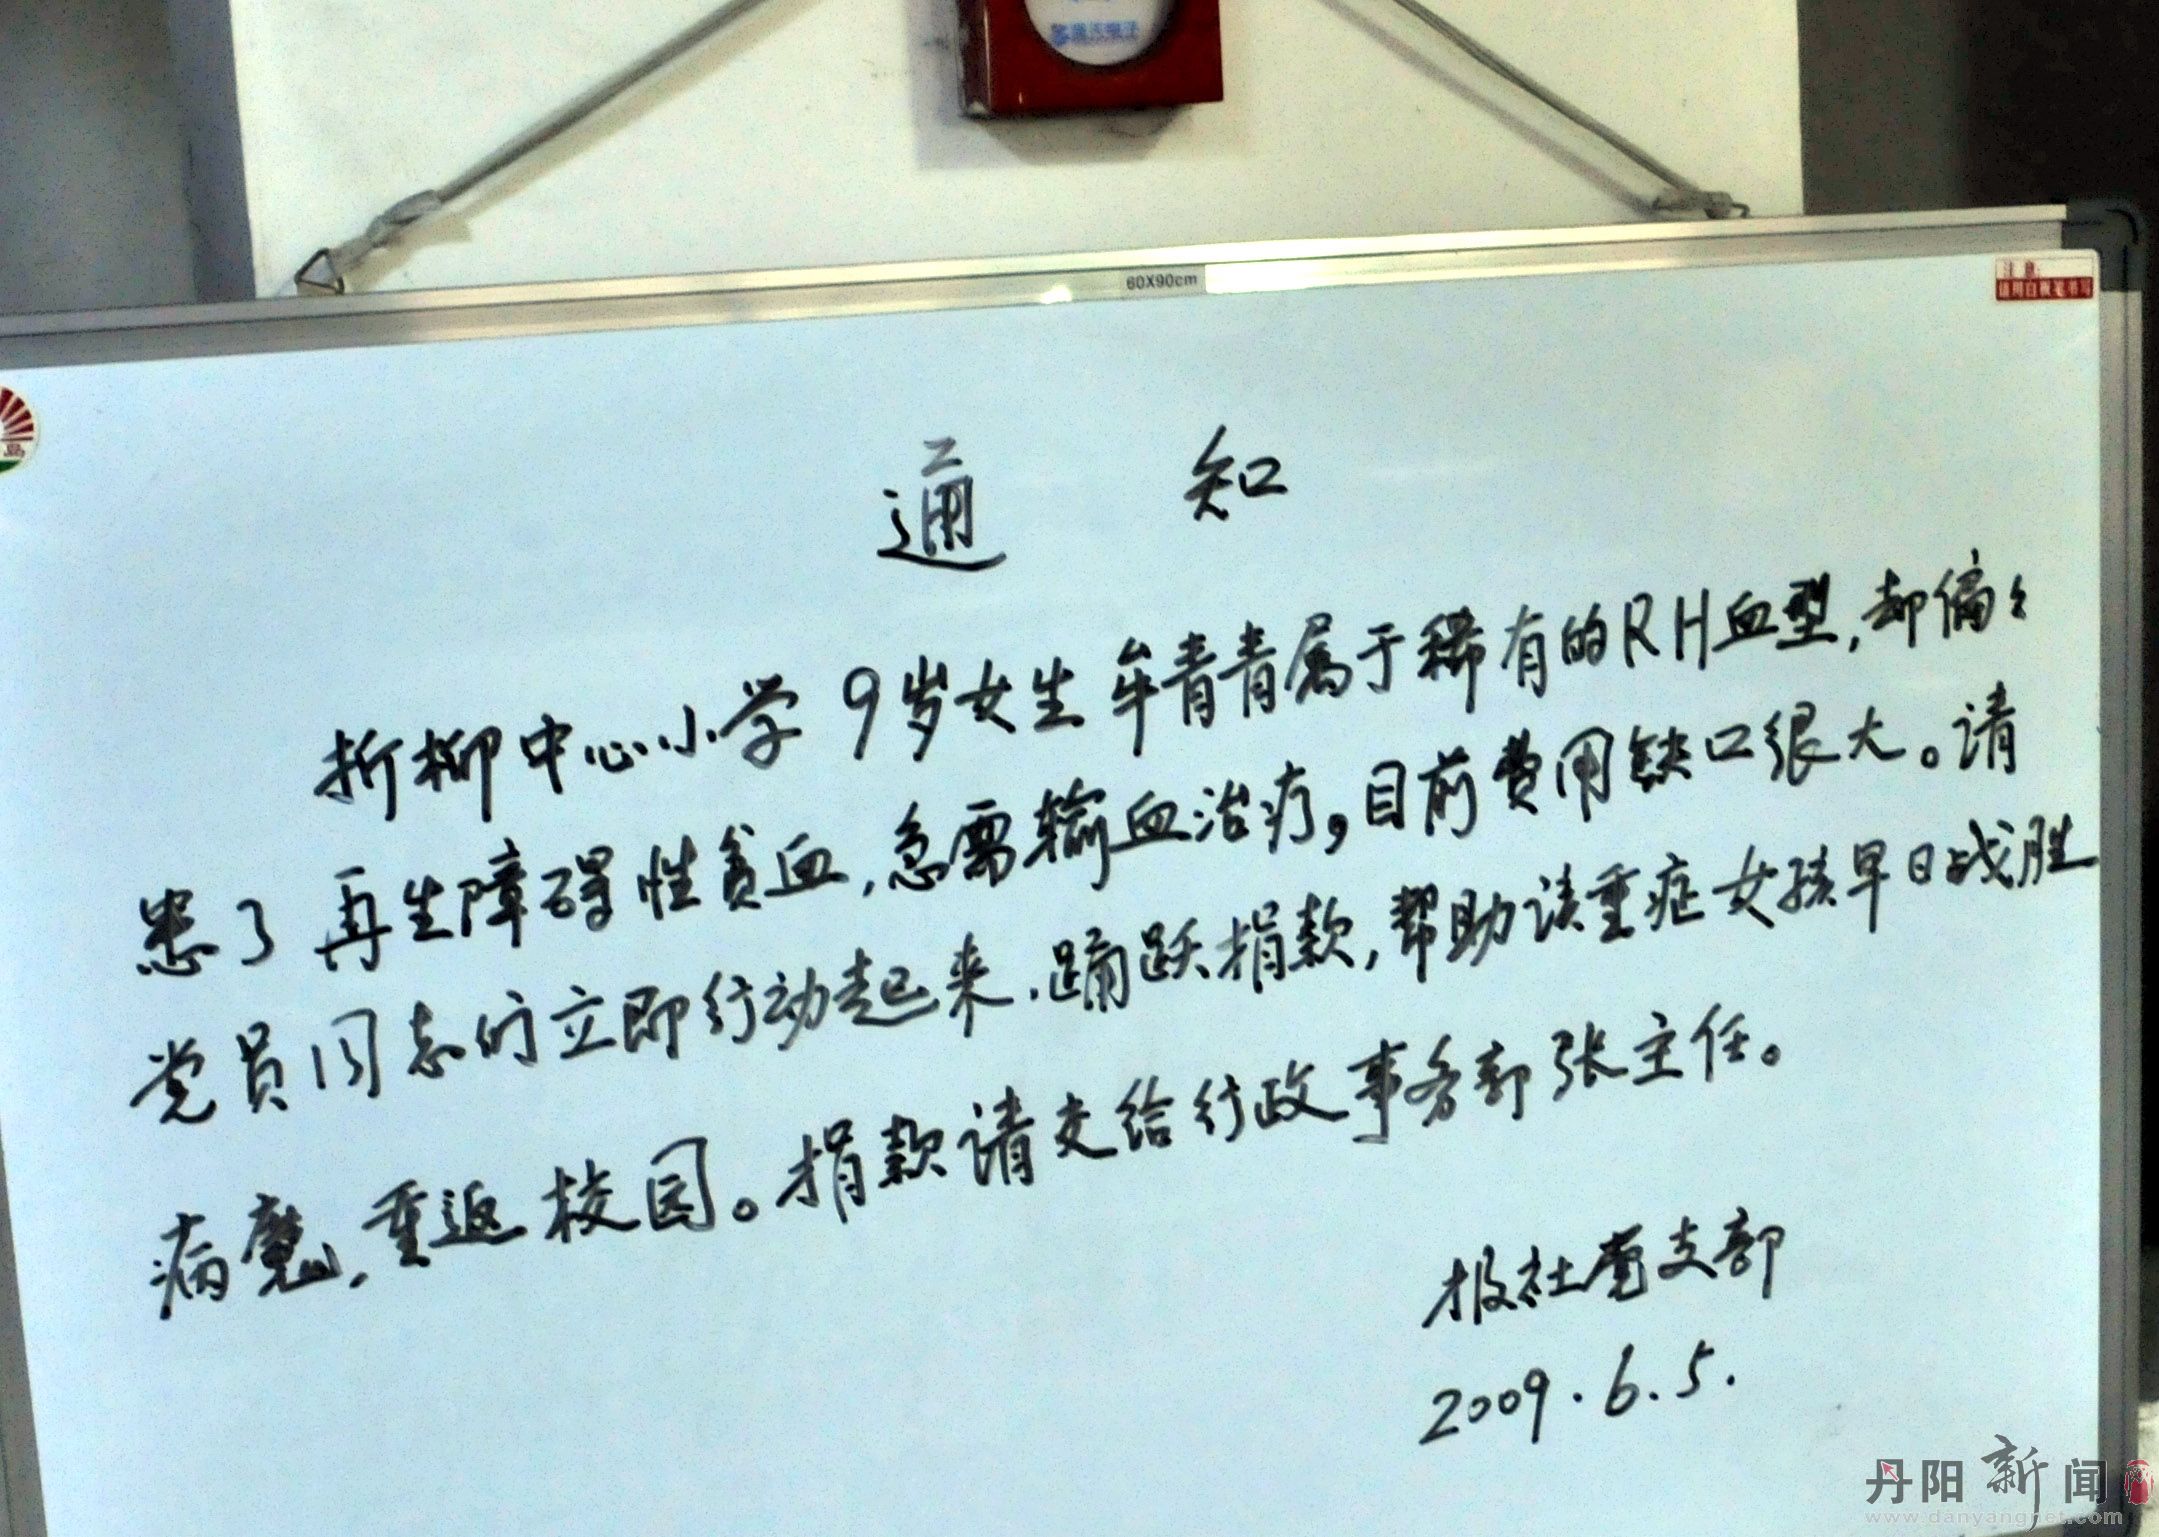 60X90cm
注意
请用白板笔书写
岛
通 知
折柳中心小学9岁女生牟青青属于稀有的RH血型,却偏々
患了再生障碍性贫血,急需输血治疗,目前费用缺口很大。请
党员同志们立即行动起来.踊跃捐款,帮助该重症女孩早日战胜
病魔,重返校园。捐款请交给行政事务部张主任。
报社党支部
2009.6.5.
丹阳新闻
www.danyangnet.com